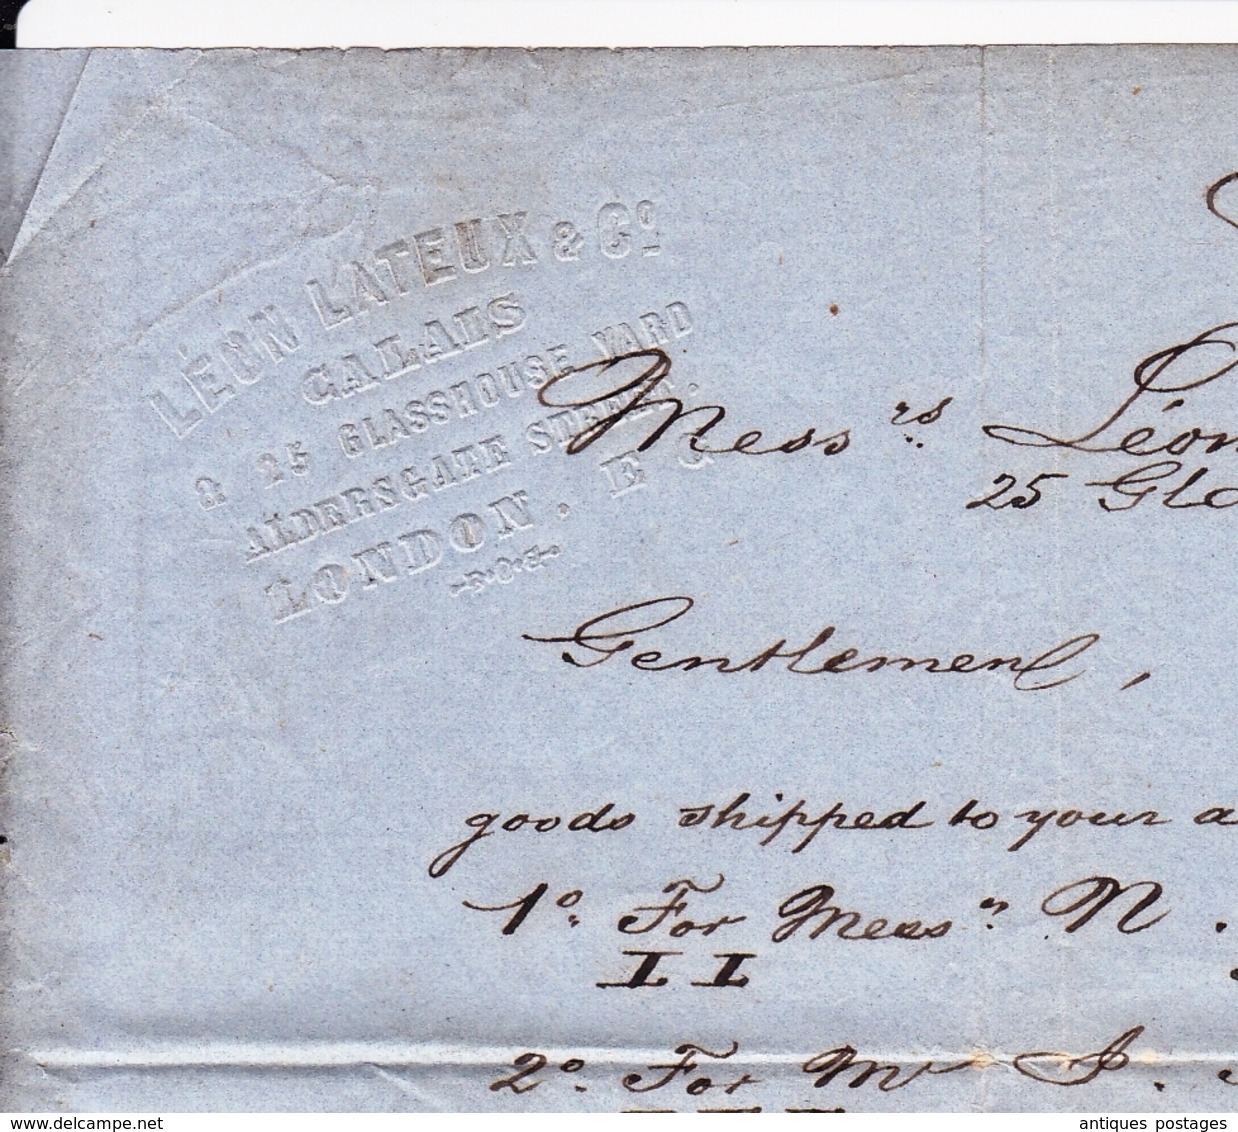 LÉON LATEUX & Co
CALAIS
& 25 GLASSHOUSE YARD
ALDERSGATE STREET.
LONDON. E C
Messrs Léon
25 Gla
Gentlemen,
goods shipped to your a
1o. For Messrs N.
I I
2o. For Mr J.
delcampe.net
antiques postages